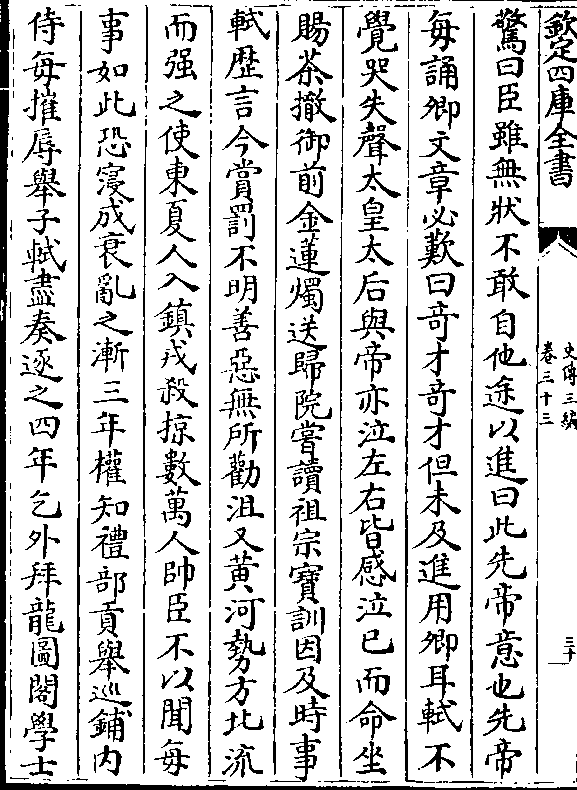 欽定四庫全書
史傳三編
卷三十三
三十一
驚曰臣雖無狀不敢自他途以進曰此先帝意也先帝
每誦卿文章必歎曰竒才竒才但未及進用卿耳軾不
覺哭失聲太皇太后與帝亦泣左右皆感泣已而命坐
賜茶撤御前金蓮燭送歸院嘗讀祖宗寶訓因及時事
軾歴言今賞罰不明善惡無所勸沮又黄河勢方北流
而强之使東夏人入鎮戎殺掠數萬人帥臣不以聞每
事如此恐寖成衰亂之漸三年權知禮部貢舉巡鋪内
侍每摧辱舉子軾盡奏逐之四年乞外拜龍圖閣學士